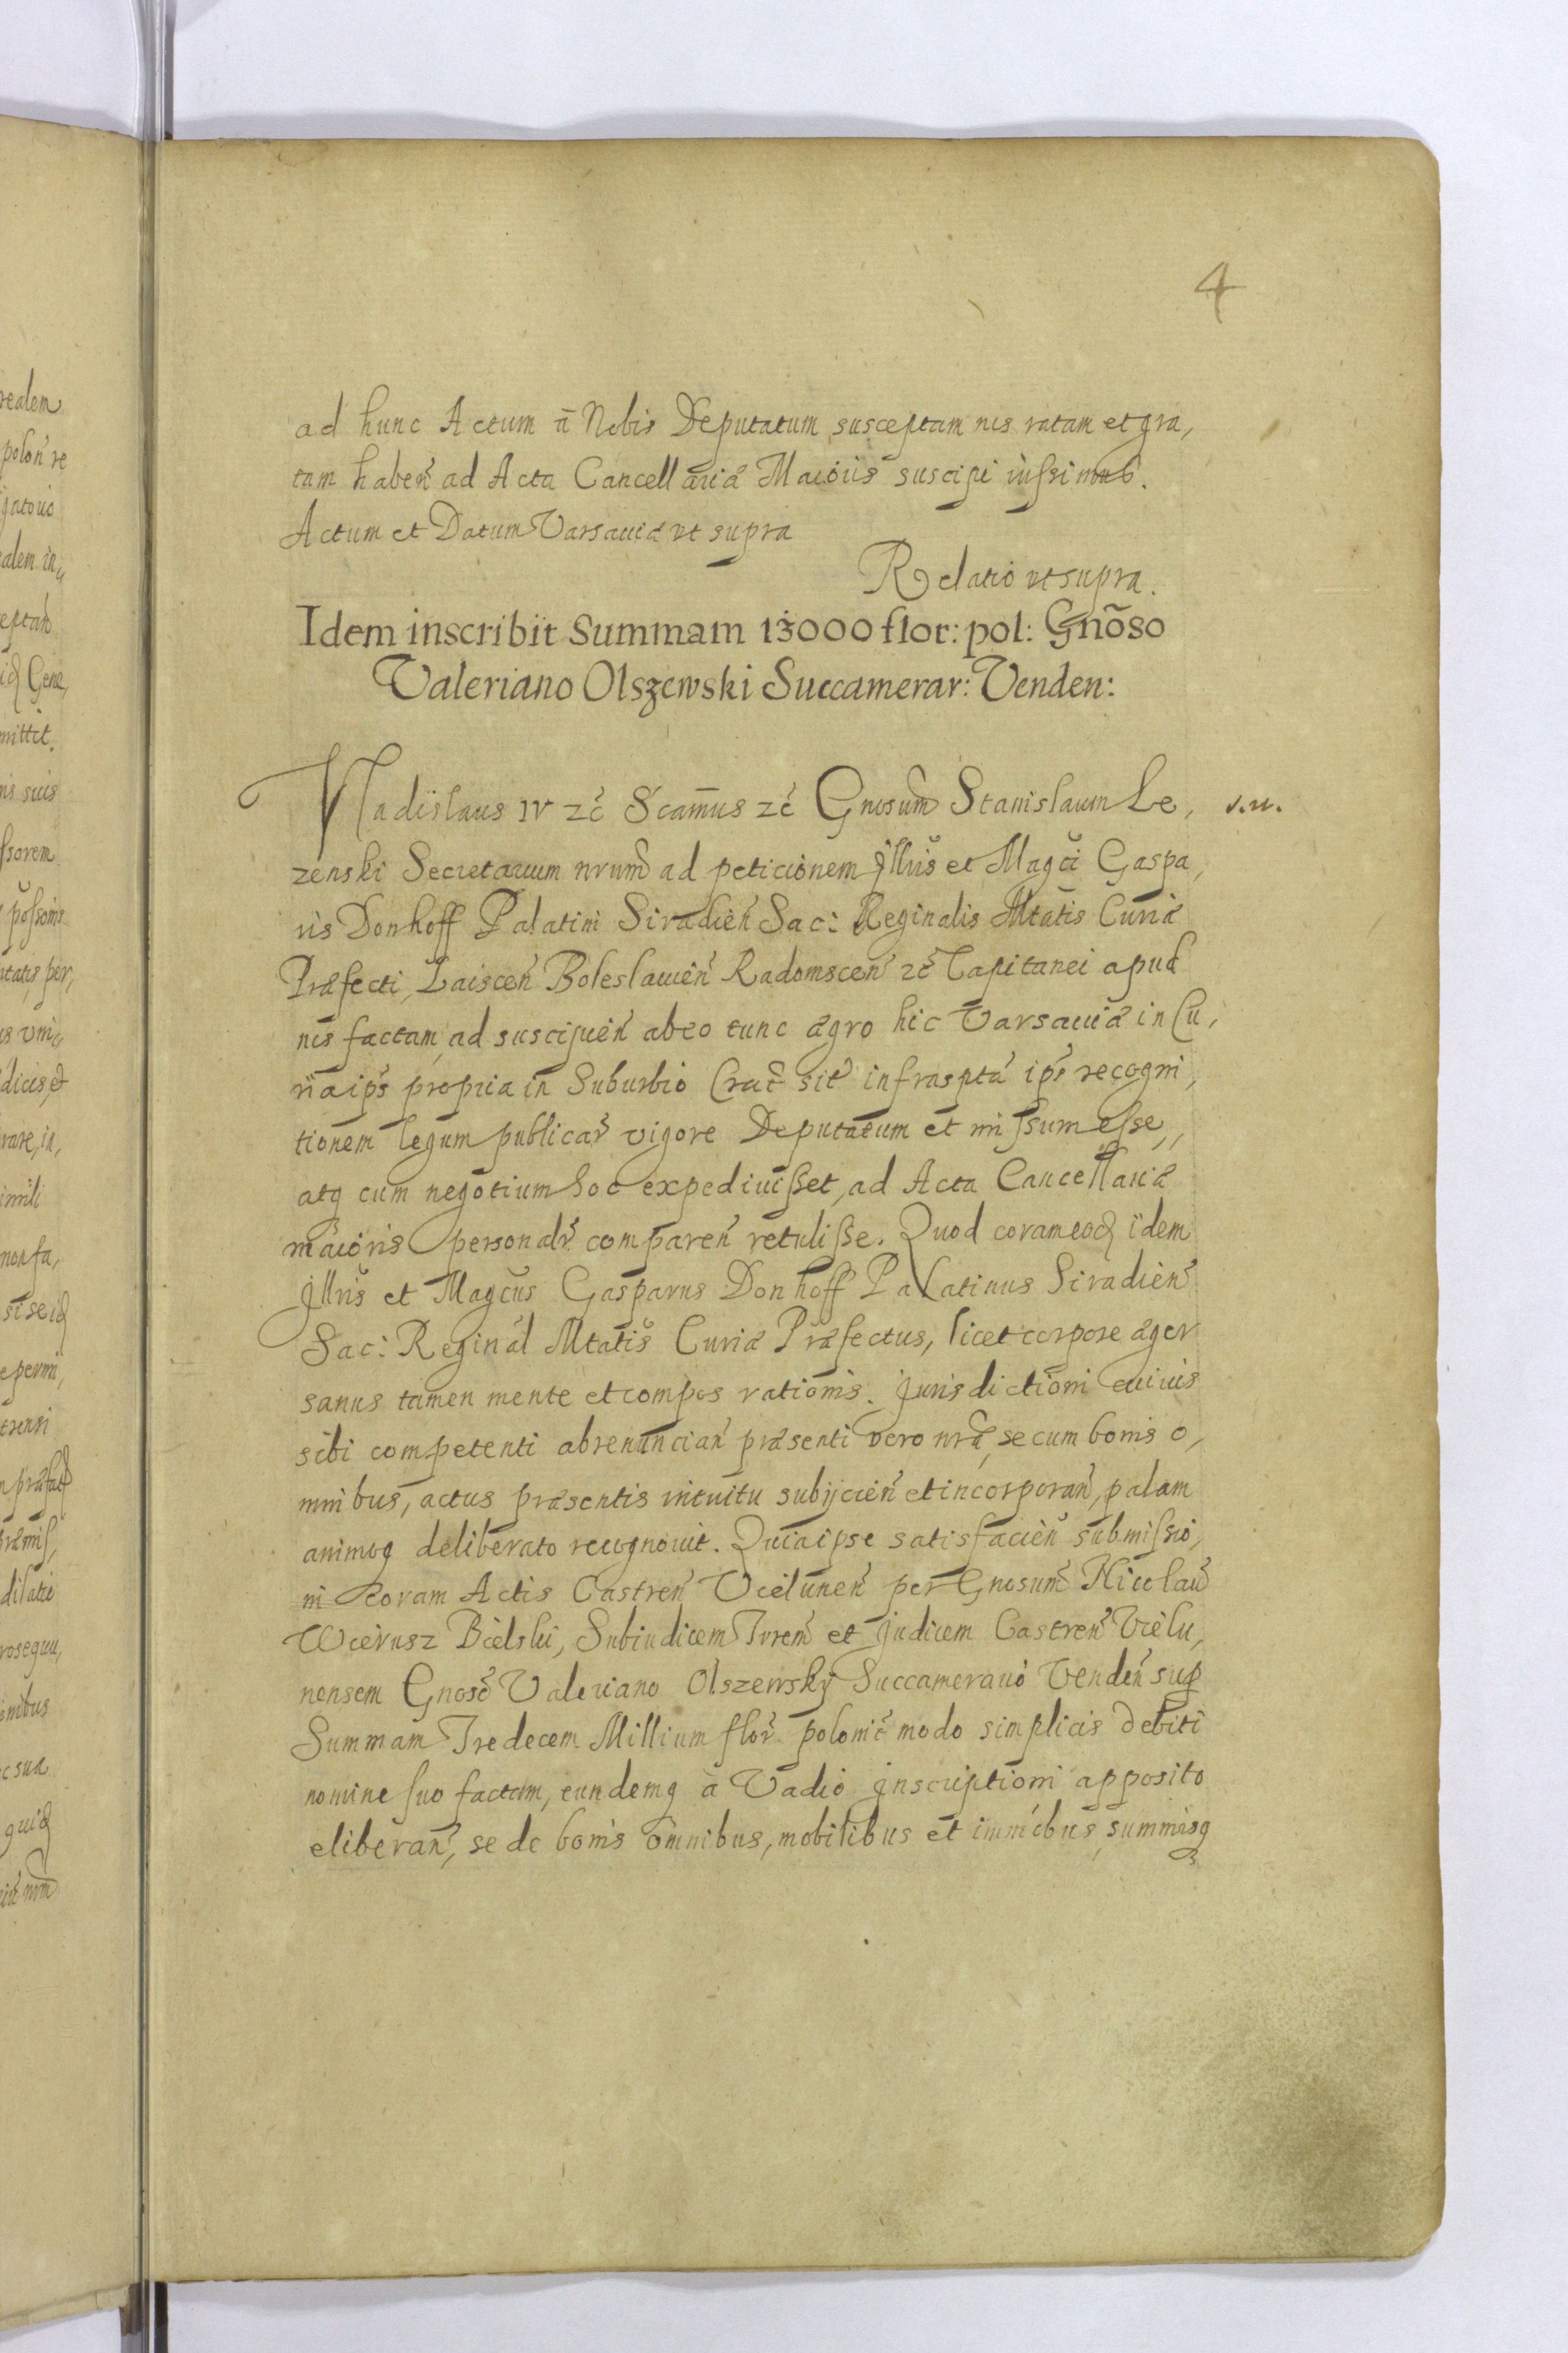 4
ad hunc Actum à Nobis Deputatum susceptam nos ratam et gra,
tam haben̄ ad Acta Cancellariæ Maioris suscipi iussimus.
Actum et Datum Varsaviæ vt supra
Relatio vt supra.
Idem inscribit Summam 13000 flor: pol: Gnõso
Valeriano Olszewski Succamerar: Venden:
Vladislaus IV zc̃ Scam̃us zc̃ Gnosum̃ Stanislaum Le, v.u.
zenski Secretarium nrum̃ ad peticionem Jllris̃ et Magc̃i Gaspa,
ris Donhoff Palatini Siradien̄ Sac: Reginalis Mtatis Curiæ
Præfecti, Laiscen̄ Boleslauien̄ Radomscen̄ zc̃ Capitanei apud
nos factam, ad suscipien̄ ab eo tunc ægro hic Varsauiæ in Cu,
ria ips̃ propria in Suburbio Crac̃ sit̃ infrasptã ips̃ recogni,
tionem legum publicar̃ vigore Deputatum et missum esse,
atq cum negotium hoc expediuisset, ad Acta Cancellariæ
maioris personalr̃ comparen̄ retulisse. Quod coram eodꝫ idem
Jllris̃ et Magc̃us Gasparus Donhoff Palatinus Siradien̄
Sac: Reginal̃ Mtatis̃ Curiæ Præfectus, licet corpore æger
sanus tamen mente et compos rationis. Jurisdictioni cuiuis
sibi competenti abrenuncian̄ præsenti vero nrã, se cum bonis o,
mnibus, actus præsentis intuitu subijcien̄ et incorporan̄, palam
animoq deliberato recognouit. Quia ipse satisfacien̄ submissio,
ni coram Actis Castren̄ Vielunen̄ per Gnosum̃ Nicolaũ
Wierusz Bielski, Subiudicem Trrem̃ et Judicem Castren̄ Vielu,
nensem Gnosõ Valeriano Olszewsky Succamerario Venden̄ sup̱
Summam Tredecem Millium flor̃ polonic̃ modo simplicis debiti
nomine suo factam, eundemq à Vadio Jnscriptioni apposito
eliberan̄, se de bonis omnibus, mobilibus et imm̃ibus, summisq